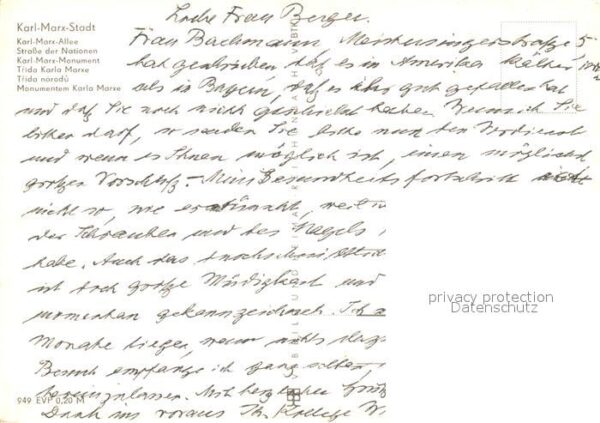 Karl-Marx-Stadt
Karl-Marx-Allee
Straße der Nationen
Karl-Marx-Monument
Třída Karla Marxe
Třída národů
Monumentem Karla Marxe
Liebe Frau Berger.
Frau Bachmann, Meistersingerstraße 5
hat geschrieben daß es in Amerika kälter
als in Bayern, daß es ihr gut gefallen hat
und daß Sie noch nicht geschrieben haben. Wenn ich Sie
bitten darf, so senden Sie bitte nun den Verdienst
und wenn es Ihnen möglich ist, einen möglichst
großen Vorschuß. - Mein Gesundheitsfortschritt
nicht so, wie erwünscht, weil
der Schrauben und des Nagels
habe. Auch das
ist doch große Müdigkeit und
momentan gekennzeichnet. Ich
Monate liegen, wenn nichts
Besuch empfange ich ganz selten,
hereinzulassen. Mit herzlichen
Dank im voraus Ihr Kollege W
949 EVP 0,20 M
privacy protection
Datenschutz